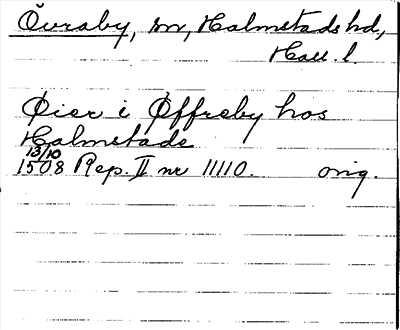 Övraby, sn, Halmstads hd,
Hall. l.
Øier i Øffreby hos
Halmstade
13/10
1508 Rep. II nr 11110. orig.